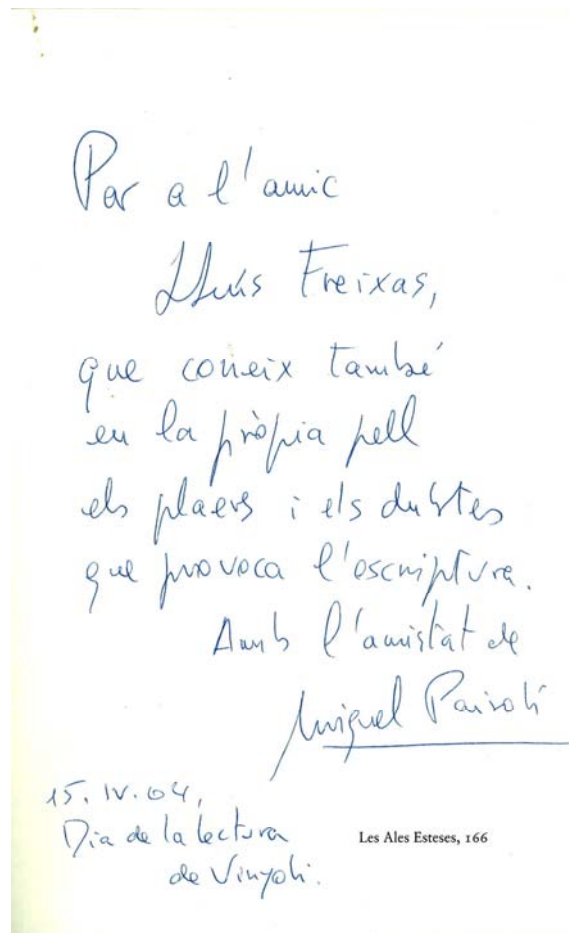 Per a l'amic
Lluís Freixas,
que coneix també
en la pròpia pell
els plaers i els dubtes
que provoca l'escriptura.
Amb l'amistat de
Miquel Pairolí
15.IV.04,
Dia de la lectura
de Vinyoli.
Les Ales Esteses, 166